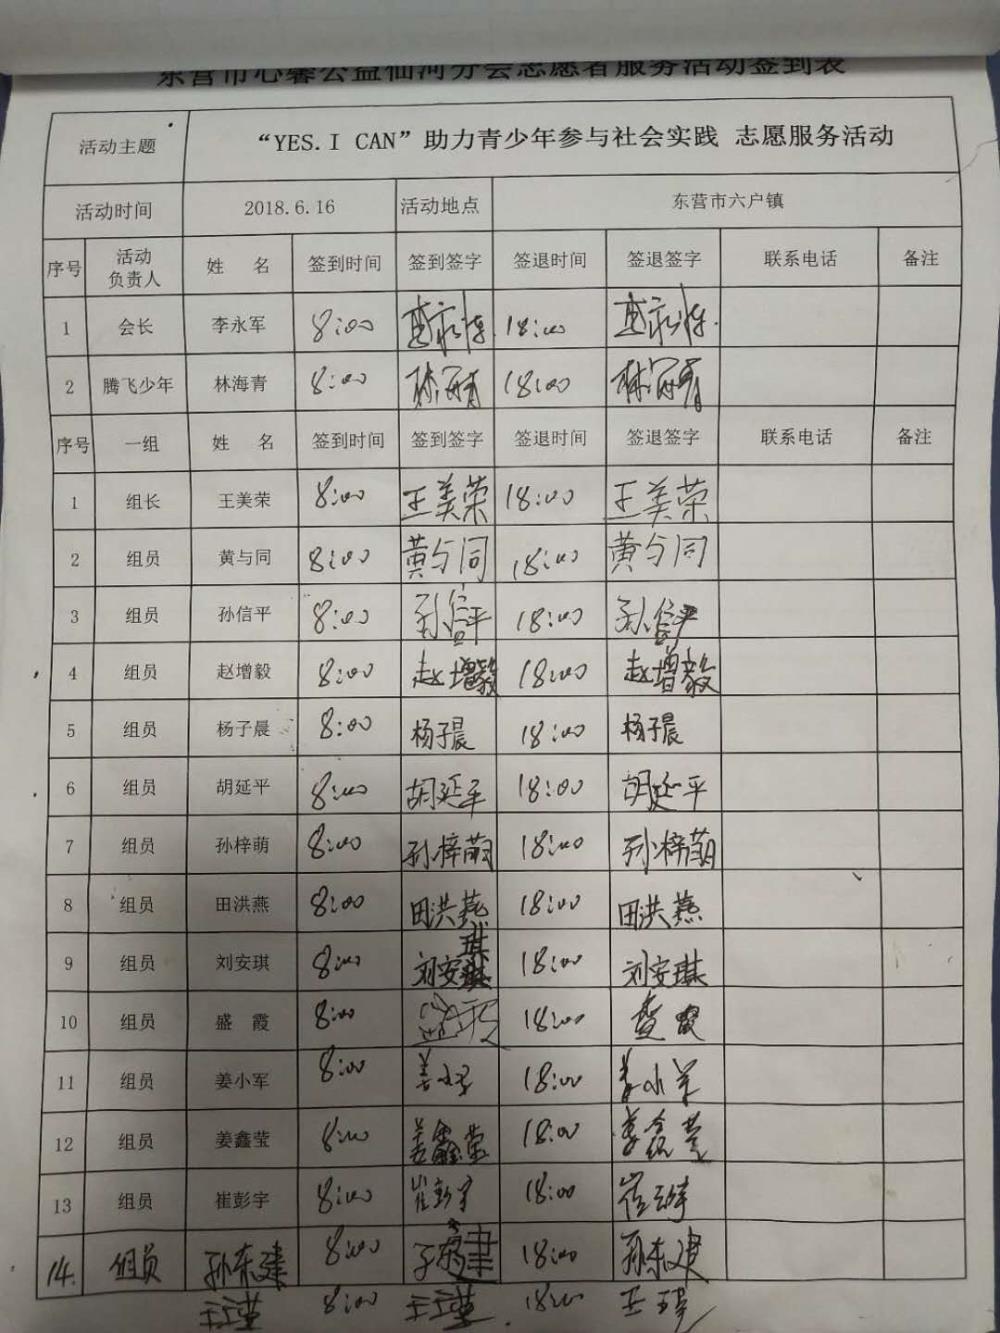 东营市心馨公益仙河分会志愿者服务活动签到表
活动主题 “YES.I CAN”助力青少年参与社会实践 志愿服务活动
活动时间 2018.6.16 活动地点 东营市六户镇
序号 活动负责人 姓 名 签到时间 签到签字 签退时间 签退签字 联系电话 备注
1 会长 李永军 8:00 18:00
2 腾飞少年 林海青 8:00 18:00
序号 一组 姓 名 签到时间 签到签字 签退时间 签退签字 联系电话 备注
1 组长 王美荣 8:00 王美荣 18:00 王美荣
2 组员 黄与同 8:00 黄与同 18:00 黄与同
3 组员 孙信平 8:00 孙信平 18:00 孙信平
4 组员 赵增毅 8:00 赵增毅 18:00 赵增毅
5 组员 杨子晨 8:00 杨子晨 18:00 杨子晨
6 组员 胡延平 8:00 胡延平 18:00 胡延平
7 组员 孙梓萌 8:00 孙梓萌 18:00 孙梓萌
8 组员 田洪燕 8:00 田洪燕 18:00 田洪燕
9 组员 刘安琪 8:00 刘安琪 18:00 刘安琪
10 组员 盛 霞 8:00 18:00
11 组员 姜小军 8:00 姜小军 18:00 姜小军
12 组员 姜鑫莹 8:00 姜鑫莹 18:00 姜鑫莹
13 组员 崔彭宇 8:00 崔彭宇 18:00
14. 组员 孙东建 8:00 孙东建 18:00 孙东建
8:00 18:00